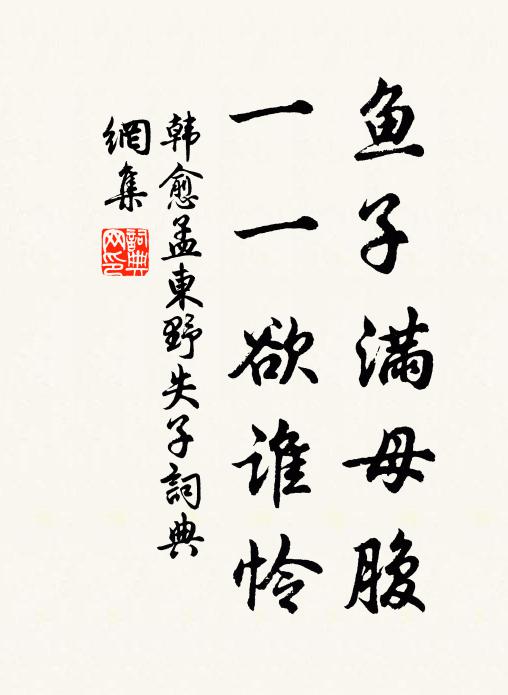 鱼子满母腹
一一欲谁怜
韩愈孟東野失子詞典
網集
詞典网印